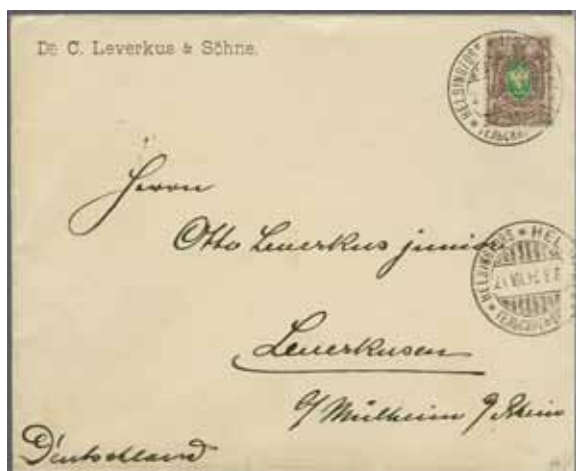 Dr. C. Leverkus & Söhne.
HELSINGFORS
Herrn
Otto Leverkus junior
HELSINGFORS * HEL
Leverkusen
b/ Mülheim a/ Rhein
Deutschland